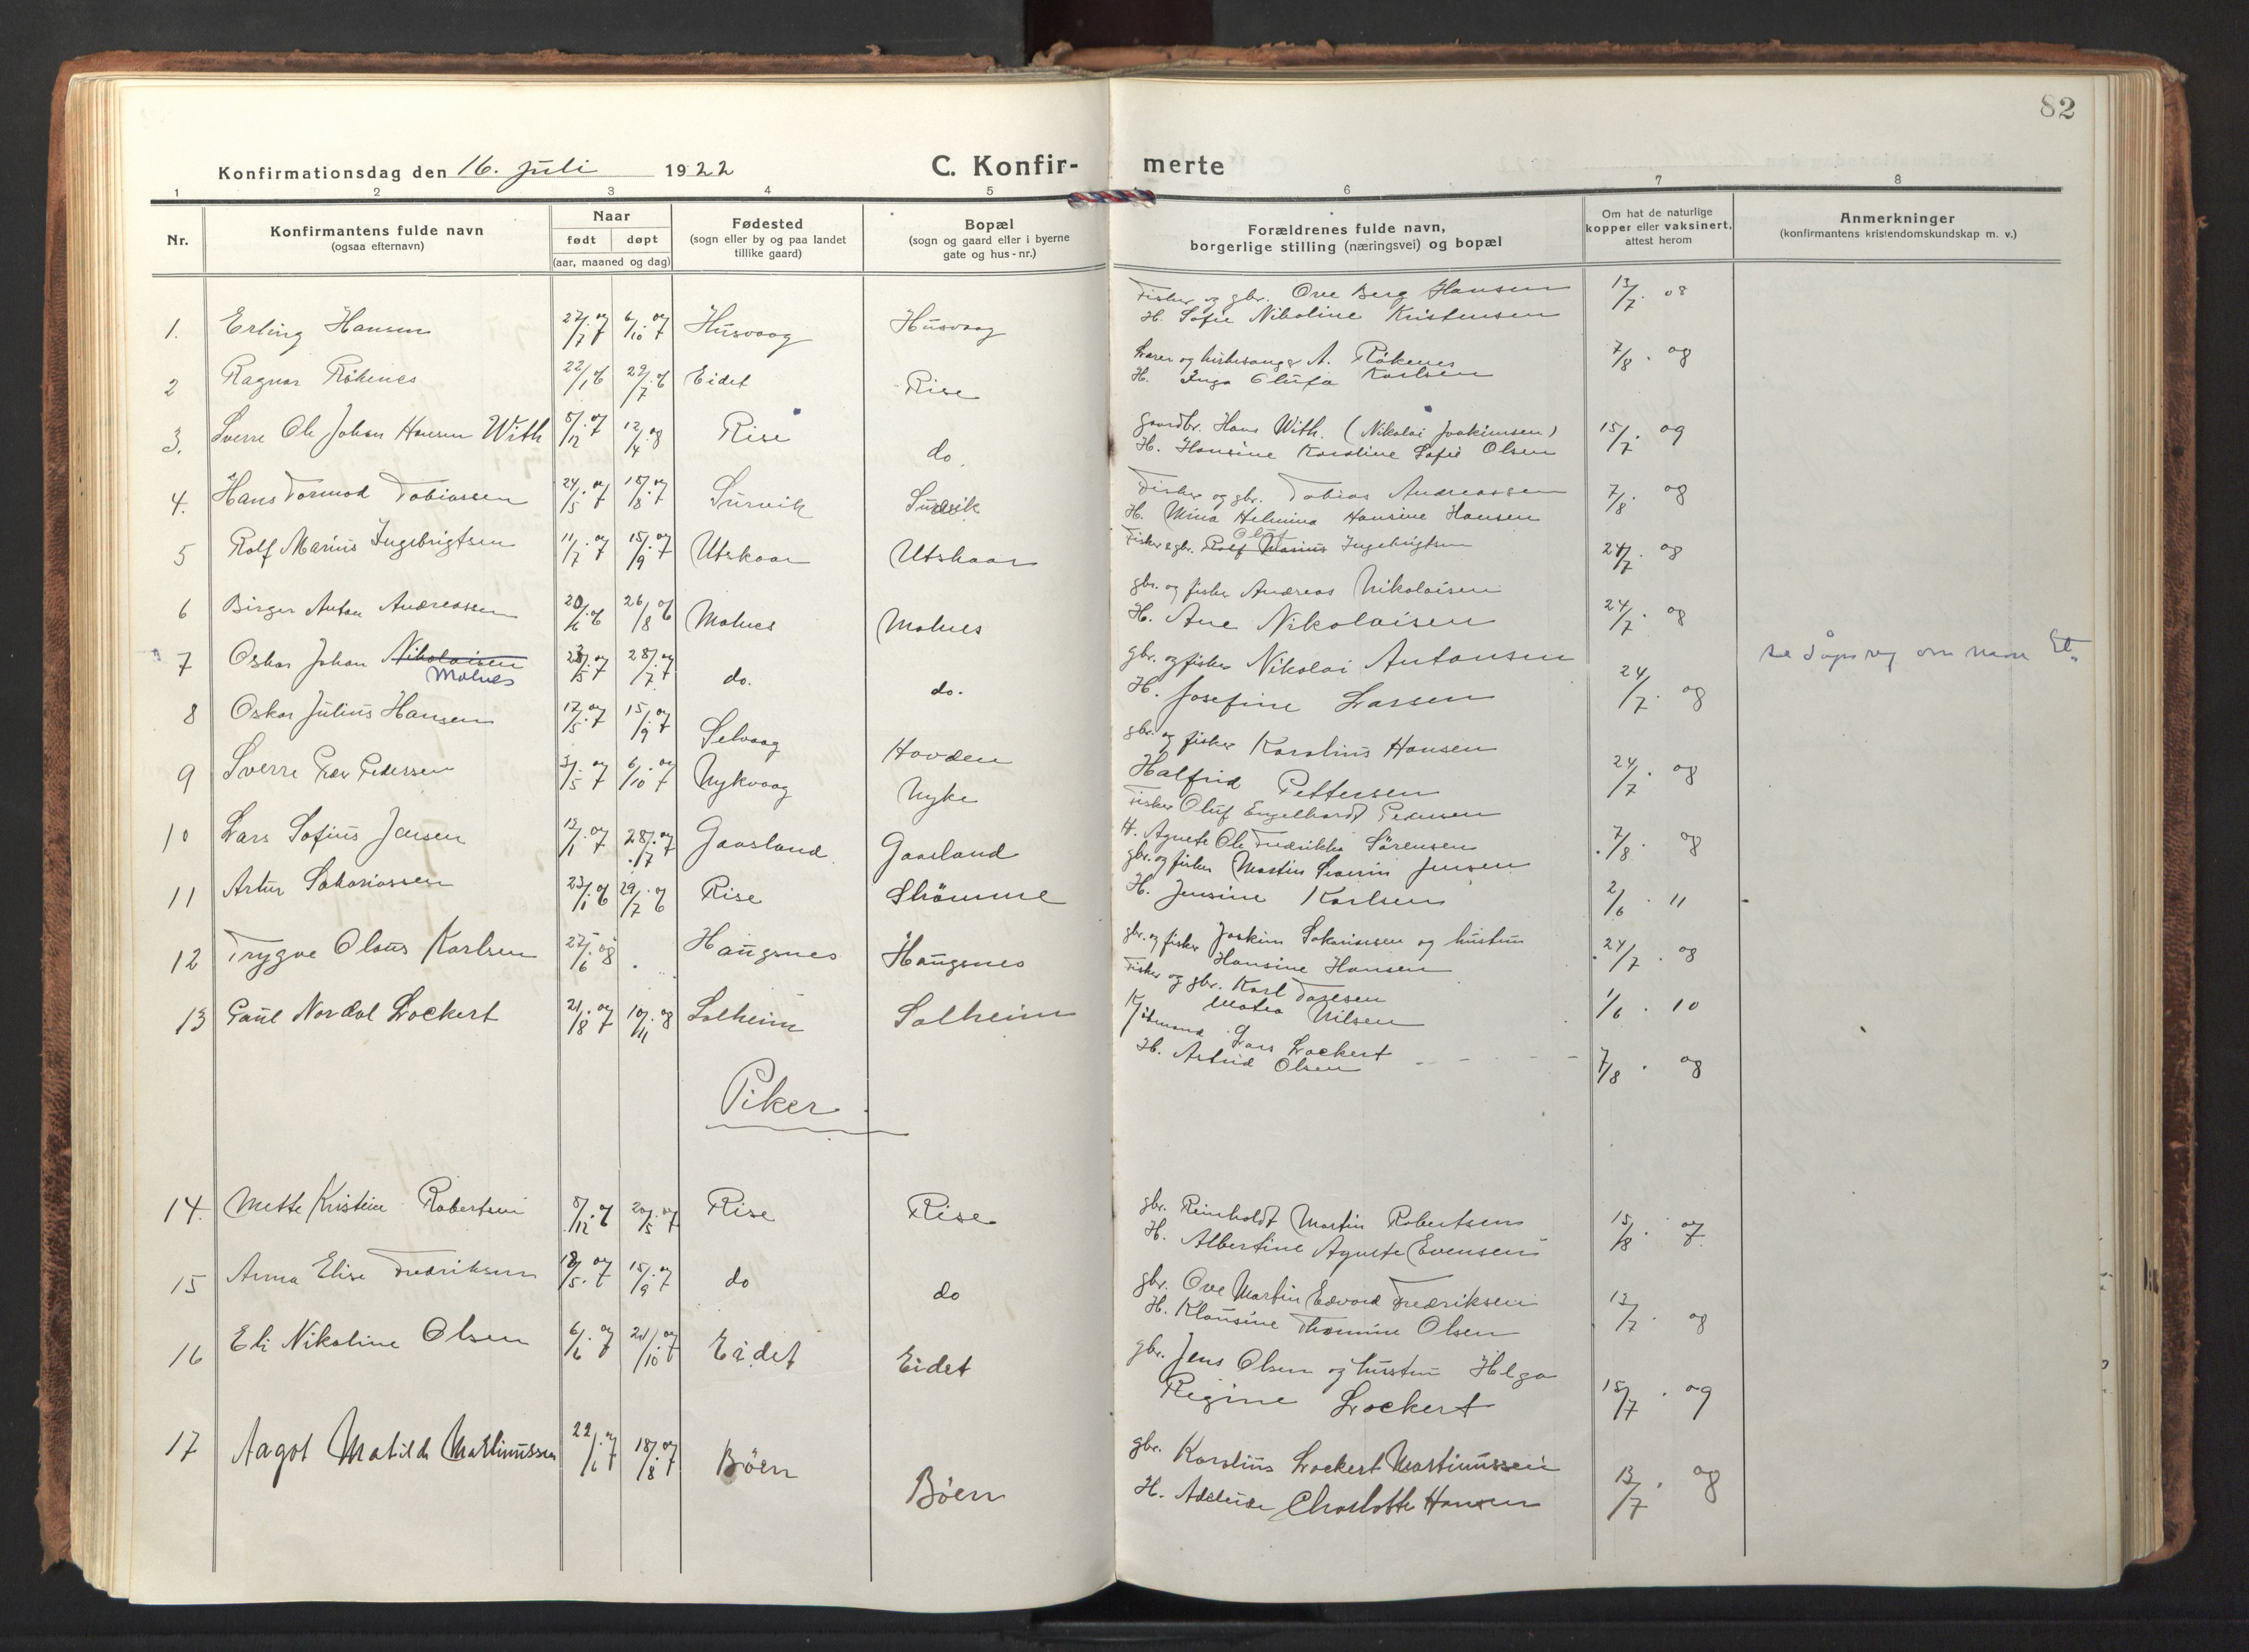 82
Konfirmationsdag den 16. juli 1922
C. Konfir-
merte
1 2 3 4 5 6 7 8
Nr.
Konfirmantens fulde navn
(ogsaa efternavn)
Naar
født døpt
(aar, maaned og dag)
Fødested
(sogn eller by og paa landet
tillike gaard)
Bopæl
(sogn og gaard eller i byerne
gate og hus-nr.)
Forældrenes fulde navn,
borgerlige stilling (næringsvei) og bopæl
Om hat de naturlige
kopper eller vaksinert,
attest herom
Anmerkninger
(konfirmantens kristendomskundskap m. v.)
1. Erling Hansen 27/7.07 6/10.07 Husvaag Husvaag
Fisker og gbr. Ove Berg Hansen 13/7. 08
H. Sofie Nikoline Kristensen
2 Ragnar Røkenes 22/1.06 29/7.06 Eidet Rise
Lærer og kirkesanger A. Røkenes 7/8. 08
H. Inga Olufa Karlsen
3. Sverre Ole Johan Hansen With 8/12.07 12/4.08 Rise do.
Gaardbr. Hans With. (Nikolai Joakimsen) 15/7. 09
H. Hansine Karoline Sofie Olsen
4. Hans Tormod Tobiassen 24/5.07 18/8.07 Survik
Fisker og gbr. Tobias Andreassen 7/8. 08
H. Mina Helmina Hansine Hansen
5 Rolf Marius Ingebrigtsen 11/7.07 15/9.07 Utskaar Utskaar
Olaf
Fisker & gbr. Rolf Marius Ingebrigtsen 24/7. 08
6 Birger Anton Andreassen 20/6.06 26/8.06 Molnes Molnes
gbr. og fisker Andreas Nikolaisen
H. Ane Nikolaisen 24/7. 08
7 Oskar Johan Nikolaisen 07 28/7.07 do. do.
Molnes
gbr. og fisker Nikolai Antonsen
H. Josefine Larsen 24/7. 08
se dåpsreg om navn
8 Oskar Julius Hansen 17/5.07 15/9.07 Selvaag Hovden
gbr. og fisker Karolius Hansen
Halfrid Pettersen 24/7. 08
9 Sverre Peder Pedersen 3/5.07 6/10.07 Nykvaag Nyke
Fisker Oluf Engelhardt Pedersen
H. Agnete Ole Fredrikke Sørensen 7/8. 08
10 Lars Sofius Jensen 13/1.07 28/7.07 Gaasland Gaasland
gbr. og fisker Martin Severin Jensen
H. Jensine Karlsen 2/6. 11
11 Artur Sakariassen 23/1.06 29/7.06 Rise Strømme
gbr. og fisker Joakim Sakariassen og hustru
Hansine Hansen 24/7. 08
12 Trygve Olaus Karlsen 27/6.08 Haugsnes Haugsnes
Fisker og gbr. Karl
Matea Nilsen 1/6. 10
13 Paul Nordal Lockert 21/8.07 10/11.08 Solheim Solheim
Lars Lockert
H. Astrid Olsen 7/8. 08
Piker
14. Mette Kristine Robertsen 8/12.06 20/5.07 Rise Rise
gbr. Reinholdt Martin Robertsen 15/8. 07
H. Albertine Agnete Evensen
15 Anna Elise Fredriksen 18/5.07 15/9.07 do do
gbr. Ove Martin Edvard Fredriksen 13/7. 08
H. Klausine Thomine Olsen
16 Eli Nikoline Olsen 6/6.07 20/10.07 Eidet Eidet
gbr. Jens Olsen og hustru Helga
Regine Lockert 15/7. 09
17 Aagot Matilde Martinussen 22/6.07 18/8.07 Bøen Bøen
gbr. Karolius Lockert Martinussen 13/7. 08
H. Adeleide Charlotte Hansen